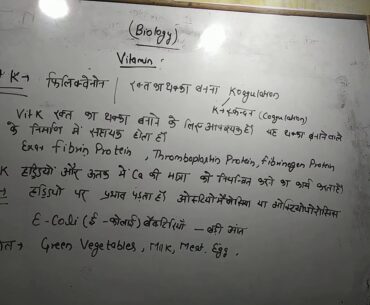 (Biology)
Vitamin:
K → फिलिक्वेनोन | रक्त का थक्का बनना Koagulation
K → स्कन्दन (Coagulation)
Vit K रक्त का थक्का बनाने के लिए आवश्यक है। यह थक्का बनाने वाले
के निर्माण में सहायक होता है।
Exa: fibrin Protein, Thromboplastin Protein, fibrinogen Protein
K हड्डियों और ऊतक में Ca की मात्रा को नियंत्रित करने का कार्य करता है।
हड्डियों पर प्रभाव पड़ता है। या ऑस्टियोपोरोसिस
E-Coli (ई-कोलाई) बैक्टीरिया – बड़ी आंत
Green Vegetables, Milk, Meat, Egg.